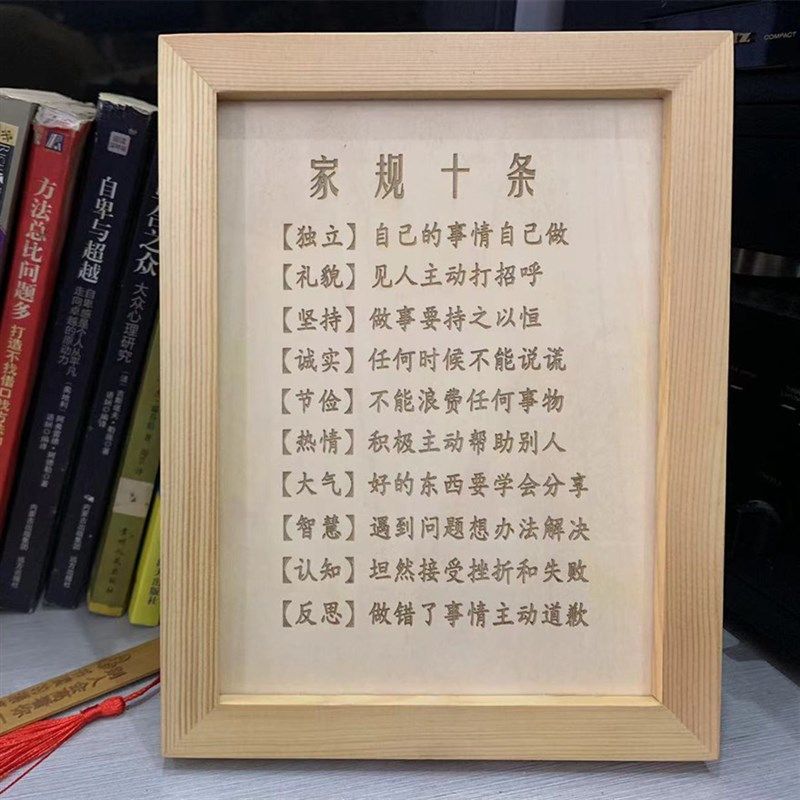 家规十条
【独立】自己的事情自己做
【礼貌】见人主动打招呼
【坚持】做事要持之以恒
【诚实】任何时候不能说谎
【节俭】不能浪费任何事物
【热情】积极主动帮助别人
【大气】好的东西要学会分享
【智慧】遇到问题想办法解决
【认知】坦然接受挫折和失败
【反思】做错了事情主动道歉
方法总比问题多
打造不找借口找方法的
自卑与超越
自卑感是个人从平凡
走向卓越的原动力
之众
大众心理研究
COMPACT